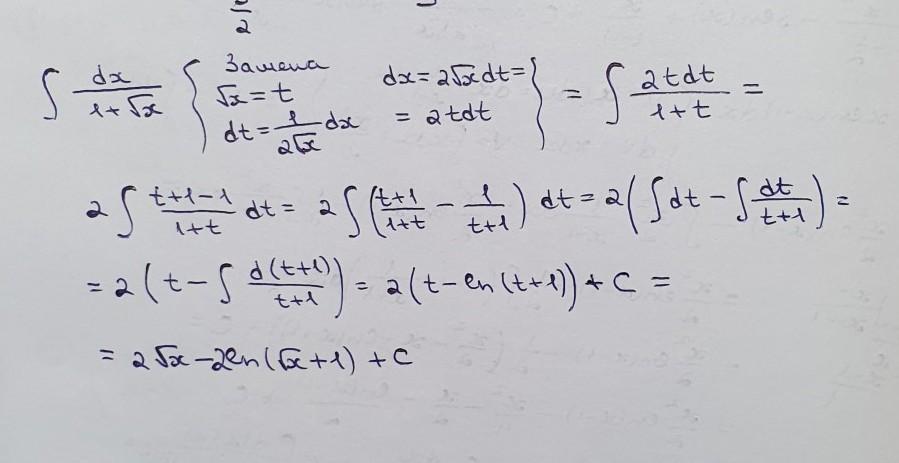 2
∫ dx/(1+√x) { Замена √x = t dt = 1/(2√x) dx dx = 2√x dt = = 2tdt } = ∫ 2tdt/(1+t) =
2 ∫ (t+1-1)/(1+t) dt = 2 ∫ ((t+1)/(1+t) - 1/(t+1)) dt = 2(∫dt - ∫ dt/(t+1)) =
= 2(t - ∫ d(t+1)/(t+1)) = 2(t - ln(t+1)) + C =
= 2√x - 2ln(√x+1) + C